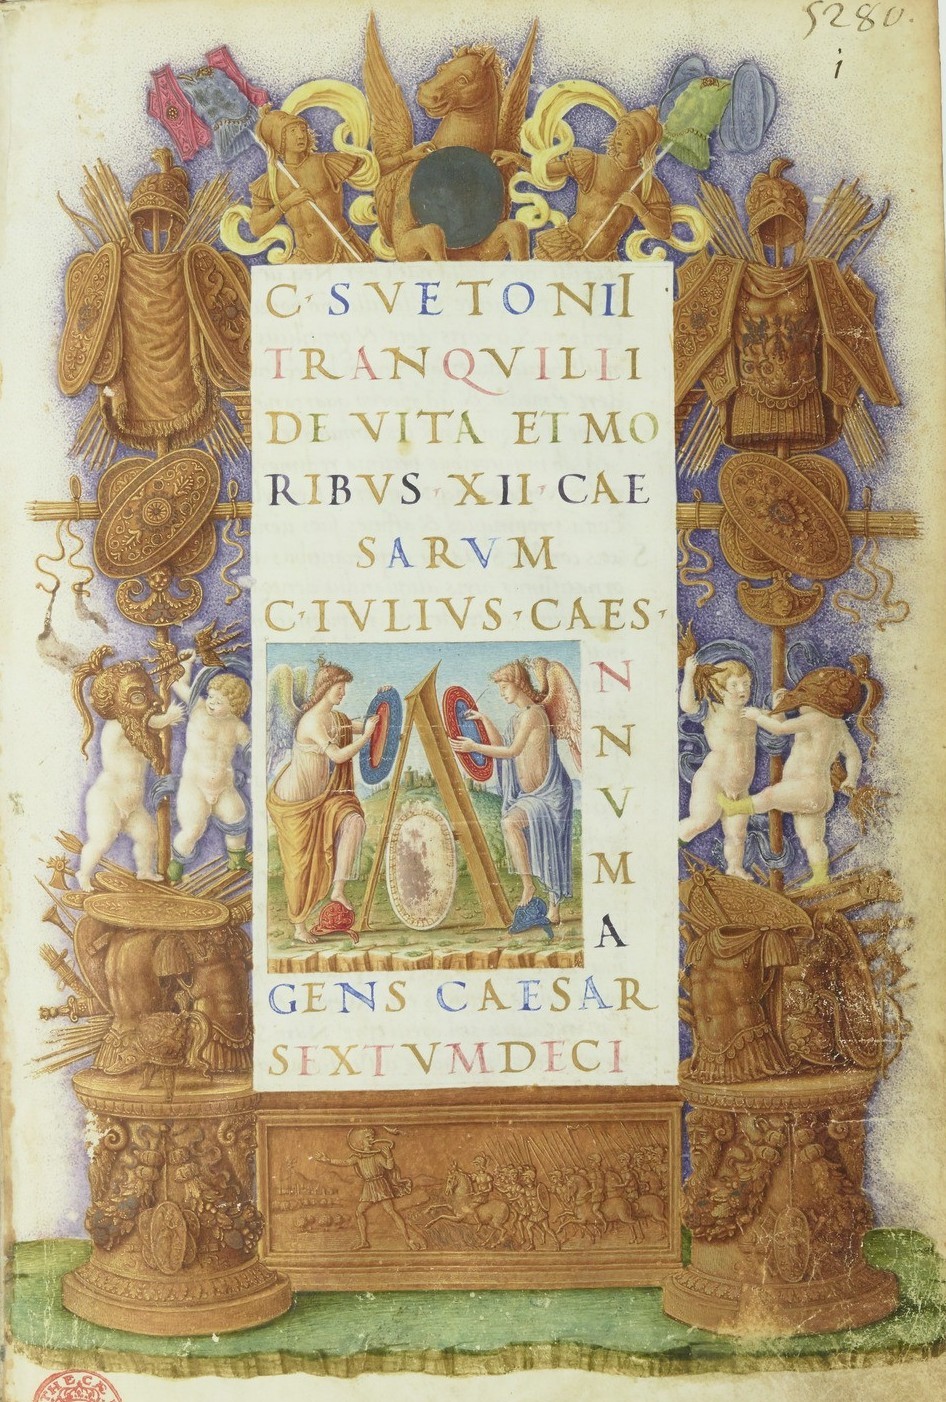 5280.
i
C· SVETONII
TRANQVILLI
DE VITA ET MO
RIBVS· XII· CAE
SARVM
C·IVLIVS·CAES·
A
N
N
V
M
A
GENS CAESAR
SEXTVMDECI
THECA